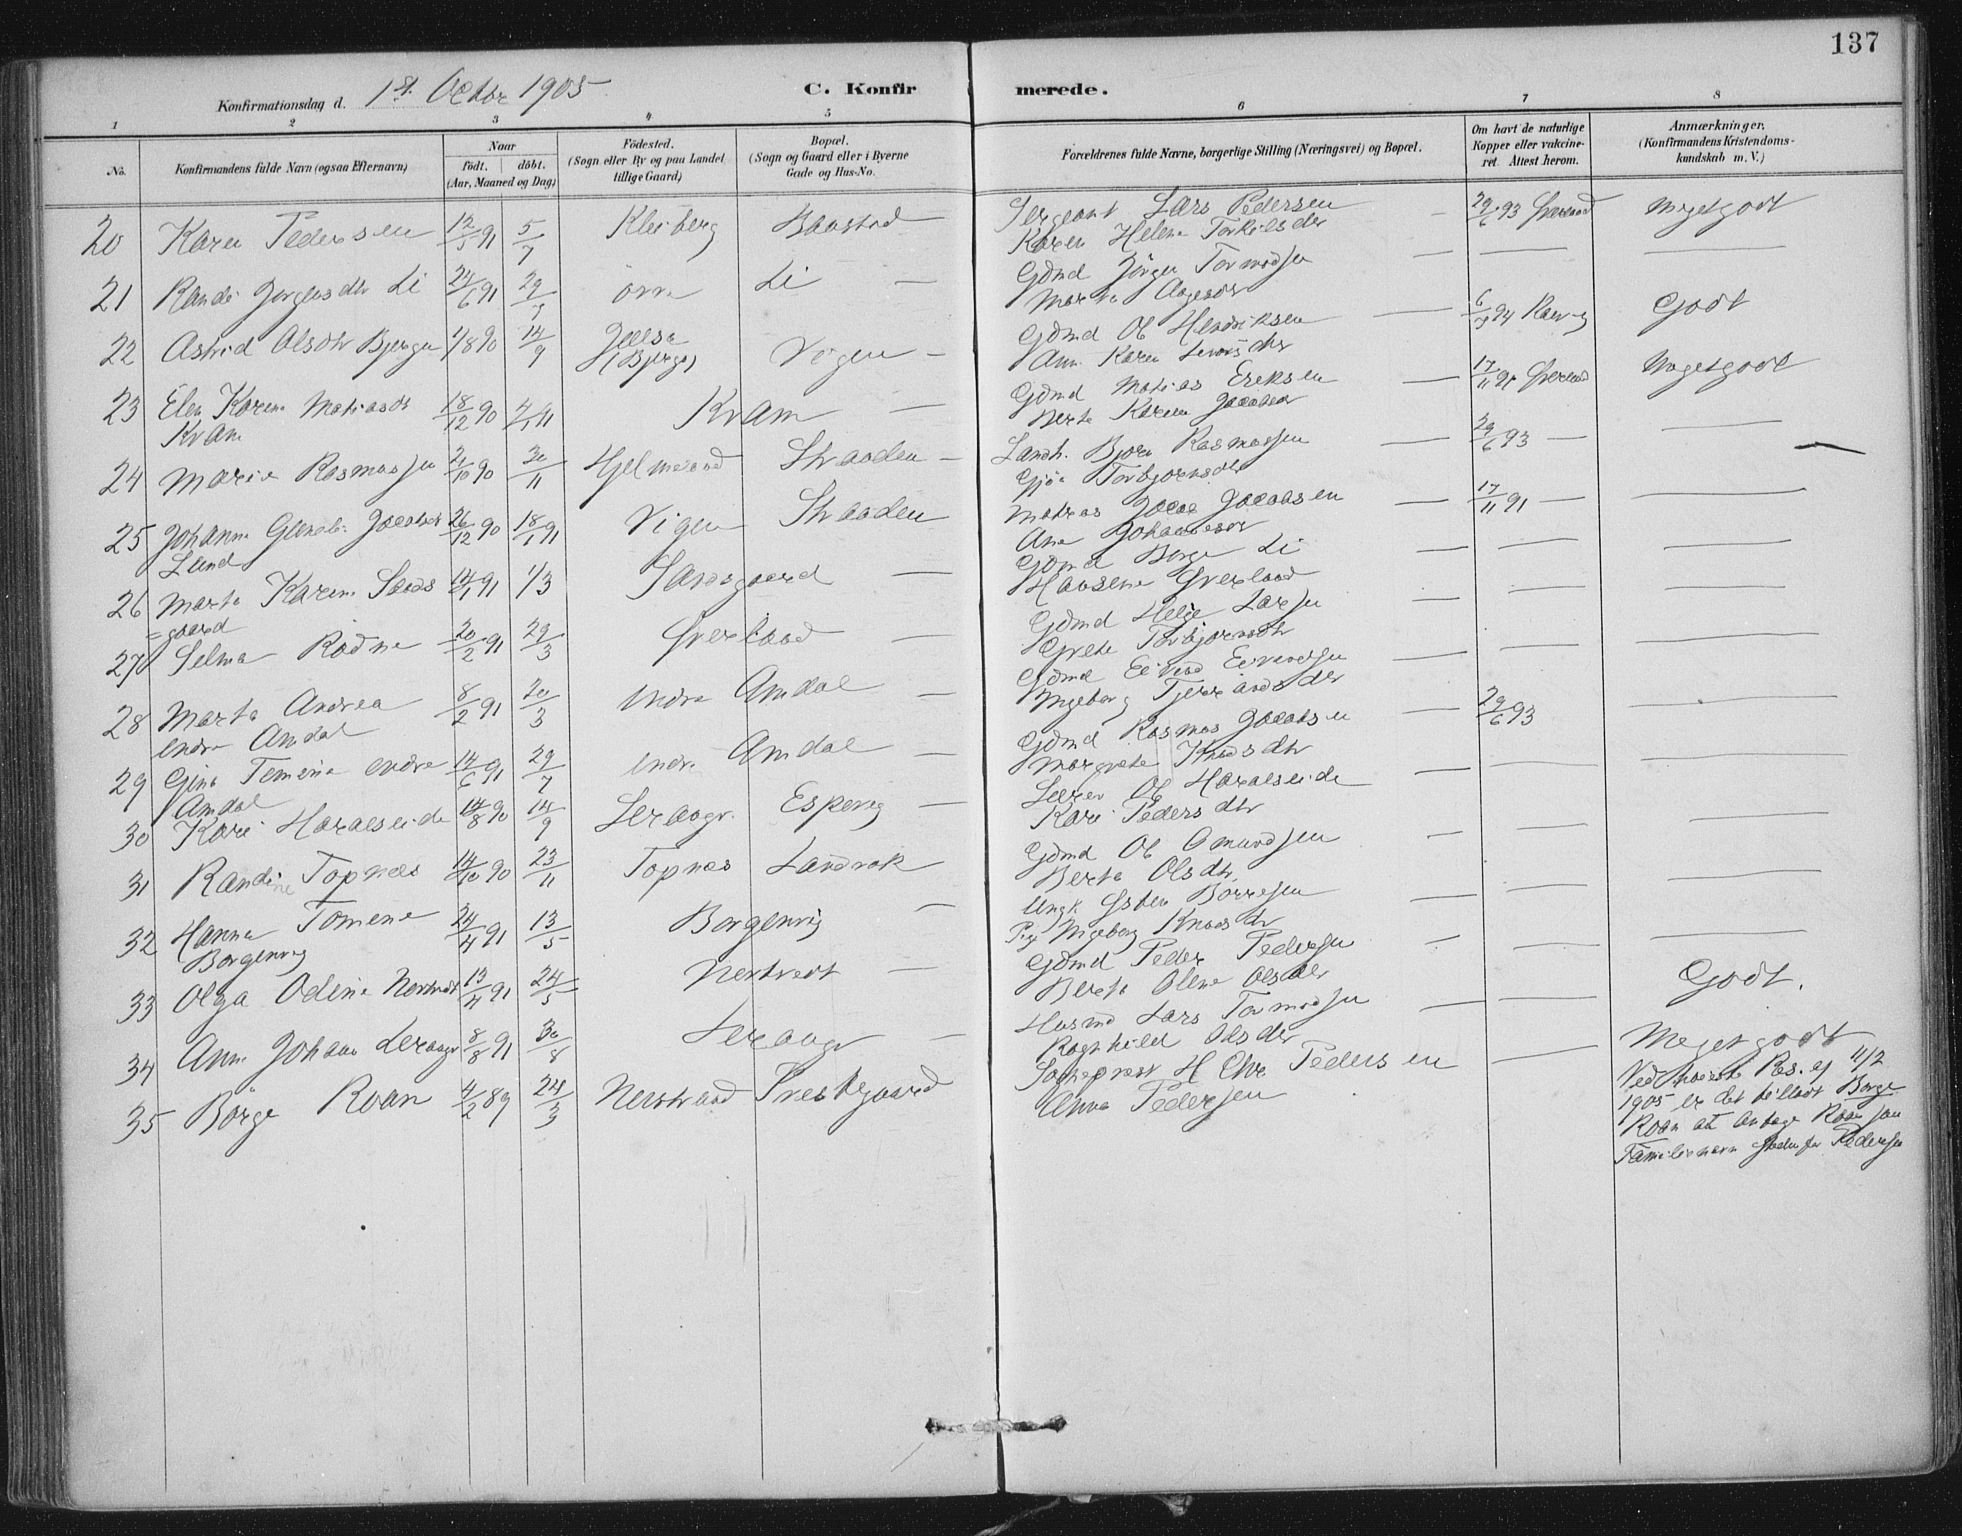 137
Konfirmationsdag d. 1st Octbr 1905
C. Konfirmerede.
1 2 3 4 5 6 7 8
No.
Konfirmandens fulde Navn (ogsaa Efternavn)
Naar
født. döbt.
(Aar, Maaned og Dag)
Födested.
(Sogn eller By og paa Landet
tillige Gaard)
Bopæl.
(Sogn og Gaard eller i Byerne
Gade og Hus-No.
Forældrenes fulde Navne, borgerlige Stilling (Næringsvei) og Bopæl.
Om havt de naturlige
Kopper eller vakcine-
ret. Attest herom.
Anmærkninger.
(Konfirmandens Kristendoms-
kundskab m. V.)
20 Karen Pedersen 12/5 91 5/7 Kleiberg Baustad — Sergeant Lars Pedersen — 29/6 93 Meget godt
Karen Helene Torkelsdtr
21 Randi Jörgensdtr Li 24/6 91 Li — Gdmd Jörgen Tormodsen — — —
22 Astrid Olsdtr Bjerga 1/8 90 14/9 Jelsa (Bjerga) Vigen — Gdmd Ol Hendriksen — Godt
Ann Karen
23 Elen Karine Matiasdr 18/12 90 Kvam — Gdmd Matias Ereksen — 17/11 91 Meget godt
Kvam Berte Karine Jacobsdr
24 Marie Rasmussen 20/10 90 30/11 Hjelmeland Straaden — Landh. Bjørn Rasmussen — 29/6 93 — —
Torbjørnsdtr
25 Johanne Jacobsdr 26/12 90 18/1 91 Vigen Straaden Matias Jacob Jacobsen — 17/11 91 — —
Lund Ane Johannesdr
26 Marta Karine Sands 14/1 91 1/3 Sandsgaard — Gdmd Børge Li — — —
= gaard
27 Selma Rødne 20/2 91 29/3 Øverland — Gdmd Helge Larsen — — —
Grete Torbjørnsdtr
28 Marta Andrea 8/2 91 30/3 Indre Amdal — Gdmd Eivind Eivindsen — — —
Indre Amdal Ingeborg
29 Gina Temine Indre 14/6 91 29/7 Indre Amdal — Gdmd Rasmus Jacobsen — 29/6 93 —
Amdal Margrete Knudsdtr
30 Kari Haraldseide 14/8 90 14/9 Leraagr. Espevig — Ol Haraldseide — — —
Kari Pedersdtr
31 Randine Topnæs 14/10 90 23/11 Topnæs Landvak Gdmd Ol Omundsen — — —
Berta Olsdtr
32 Hanna Tomene 24/4 91 13/5 Borgenvig — Ungk Østen Børresen — — —
Borgenvig Pig Ingeborg Knudsdtr
33 Olga Odine Nertvedt 13/4 91 24/5 Nertvedt — Gdmd Peder Pedersen — — Godt.
Berta Oline Olsdtr
34 Ann Johan Leraagr 8/8 91 30/8 Leraagr — Husmd Lars Tormodsen — — Meget godt
Ragnhild Olsdtr
35 Børge Roan 4/2 89 24/3 Nerstrand Prestegaard Sogneprest H Chr Pedersen —
Anna Pedersen
Ved høieste Res. af 11/2
1905 er det tilladt Børge
Roan at antage Roan som
Familienavn istedenfor Pedersen